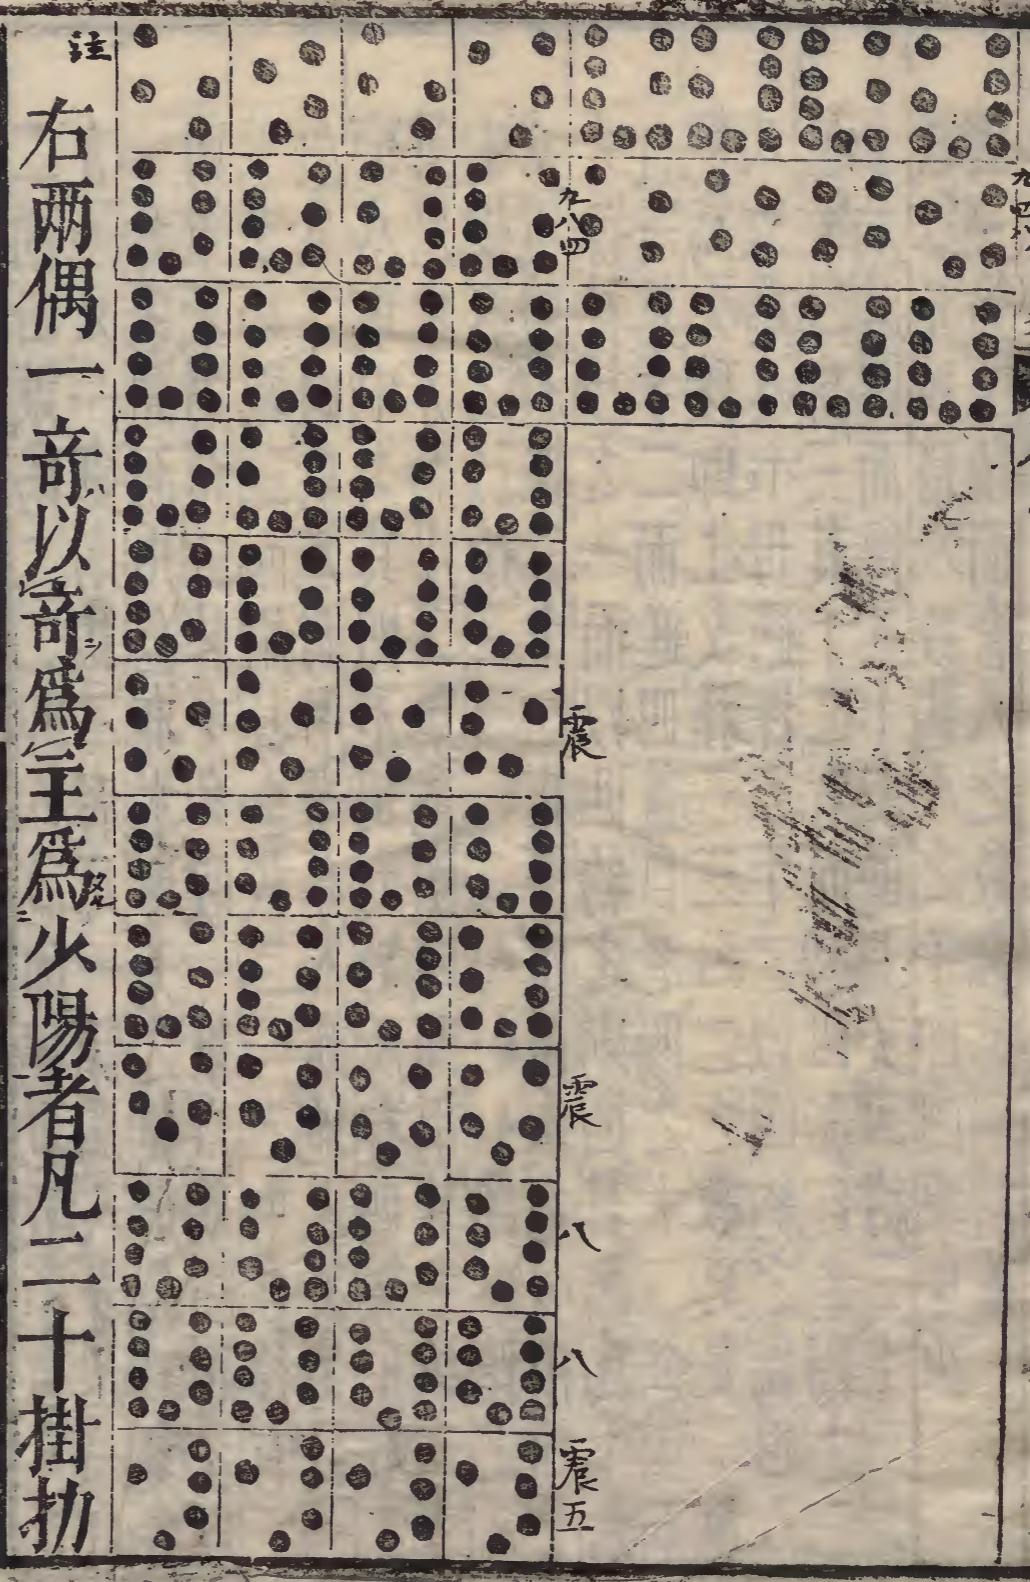 九八四
震
震
八
八
震五
註
右兩偶一竒以竒爲主爲少陽者凡二十掛扐